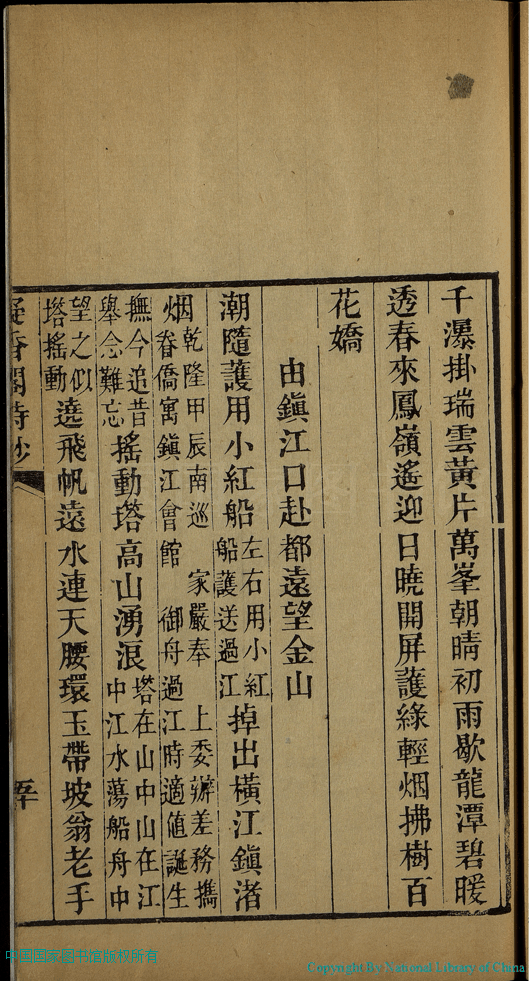 千瀑掛瑞雲黃片萬峯朝晴初雨歇龍潭碧暖
透春來鳳嶺遙迎日曉開屏護綠輕烟拂樹百
花嬌
由鎮江口赴都遠望金山
潮隨護用小紅船左右用小紅船護送過江掉出橫江鎮渚
烟乾隆甲辰南巡 家嚴奉 上委辦差務携眷僑寓鎮江會館 御舟過江時適值誕生
撫今追昔舉念難忘搖動塔高山湧浪塔在山中山在江中江水蕩船舟中
望之似塔搖動遶飛帆遠水連天腰環玉帶坡翁老手
香閣詩
中国国家图书馆版权所有
Copyright By National Library of China